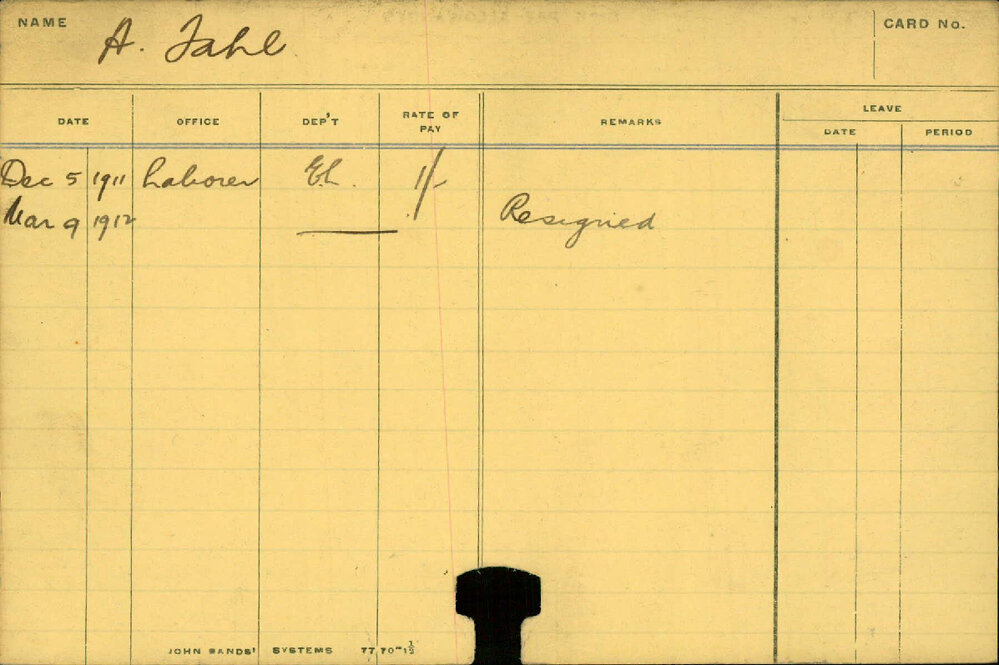 NAME A. Fahl CARD No.
LEAVE
DATE OFFICE DEP'T RATE OF PAY REMARKS DATE PERIOD
Dec 5 1911 Laborer EL. 1/-
Mar 9 1912 Resigned
JOHN SANDS' SYSTEMS 77 70